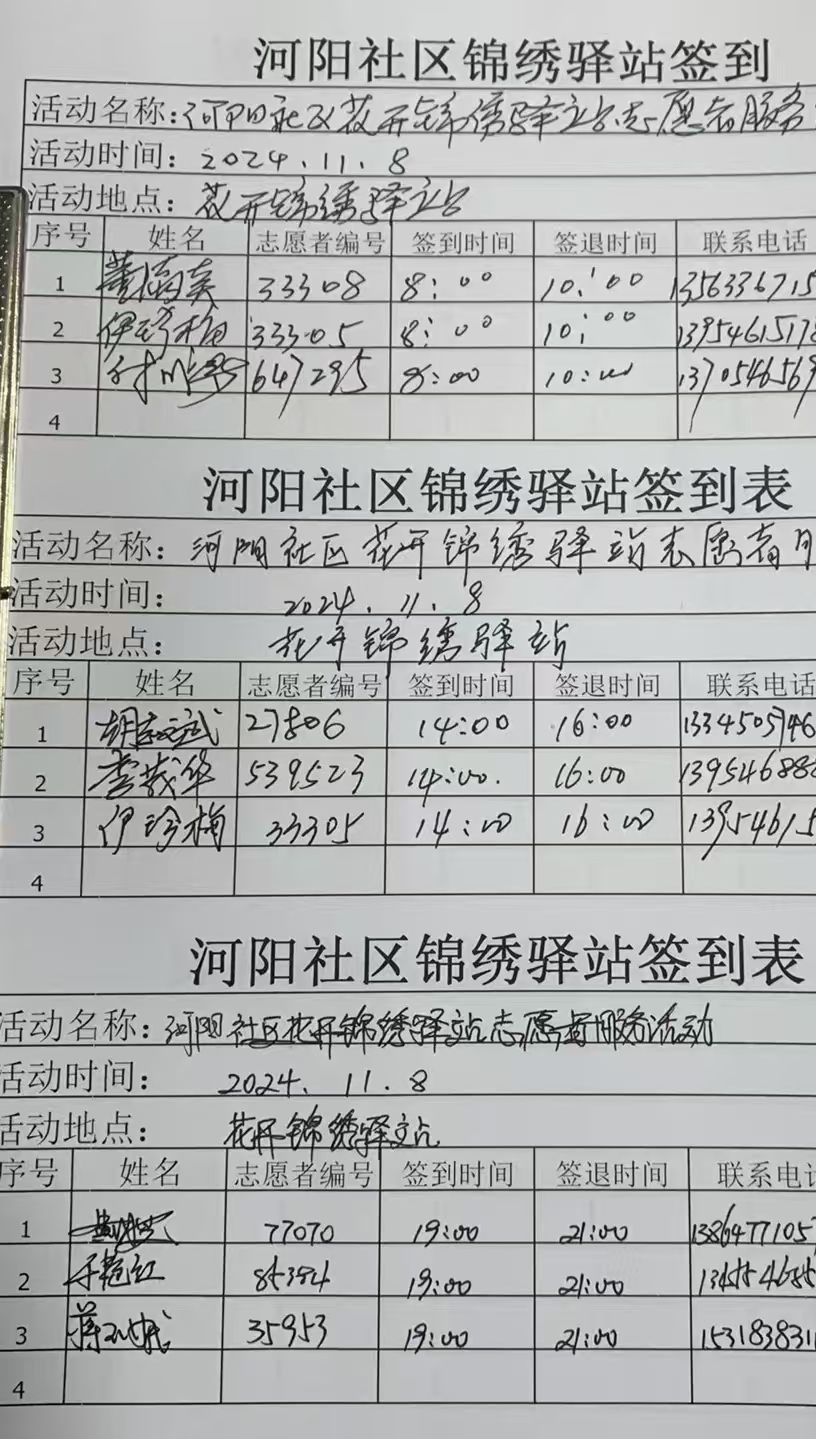 河阳社区锦绣驿站签到
活动名称：河阳社区花开锦绣驿站志愿者服务
活动时间：2024.11.8
活动地点：花开锦绣驿站
序号 姓名 志愿者编号 签到时间 签退时间 联系电话
1 33308 8:00 10:00 1356336715
2 伊珍梅 33305 8:00 10:00 1395461517
3 647295 8:00 10:00 137054656
4
河阳社区锦绣驿站签到表
活动名称：河阳社区花开锦绣驿站志愿者
活动时间：2024.11.8
活动地点：花开锦绣驿站
序号 姓名 志愿者编号 签到时间 签退时间 联系电话
1 27806 14:00 16:00
2 539523 14:00. 16:00 139546888
3 伊珍梅 33305 14:00 16:00 13954615
4
河阳社区锦绣驿站签到表
活动名称：河阳社区花开锦绣驿站志愿者服务活动
活动时间：2024.11.8
活动地点：花开锦绣驿站
序号 姓名 志愿者编号 签到时间 签退时间 联系电话
1 77070 19:00 21:00 1386477105
2 于艳红 85384 19:00 21:00
3 35953 19:00 21:00 153183831
4